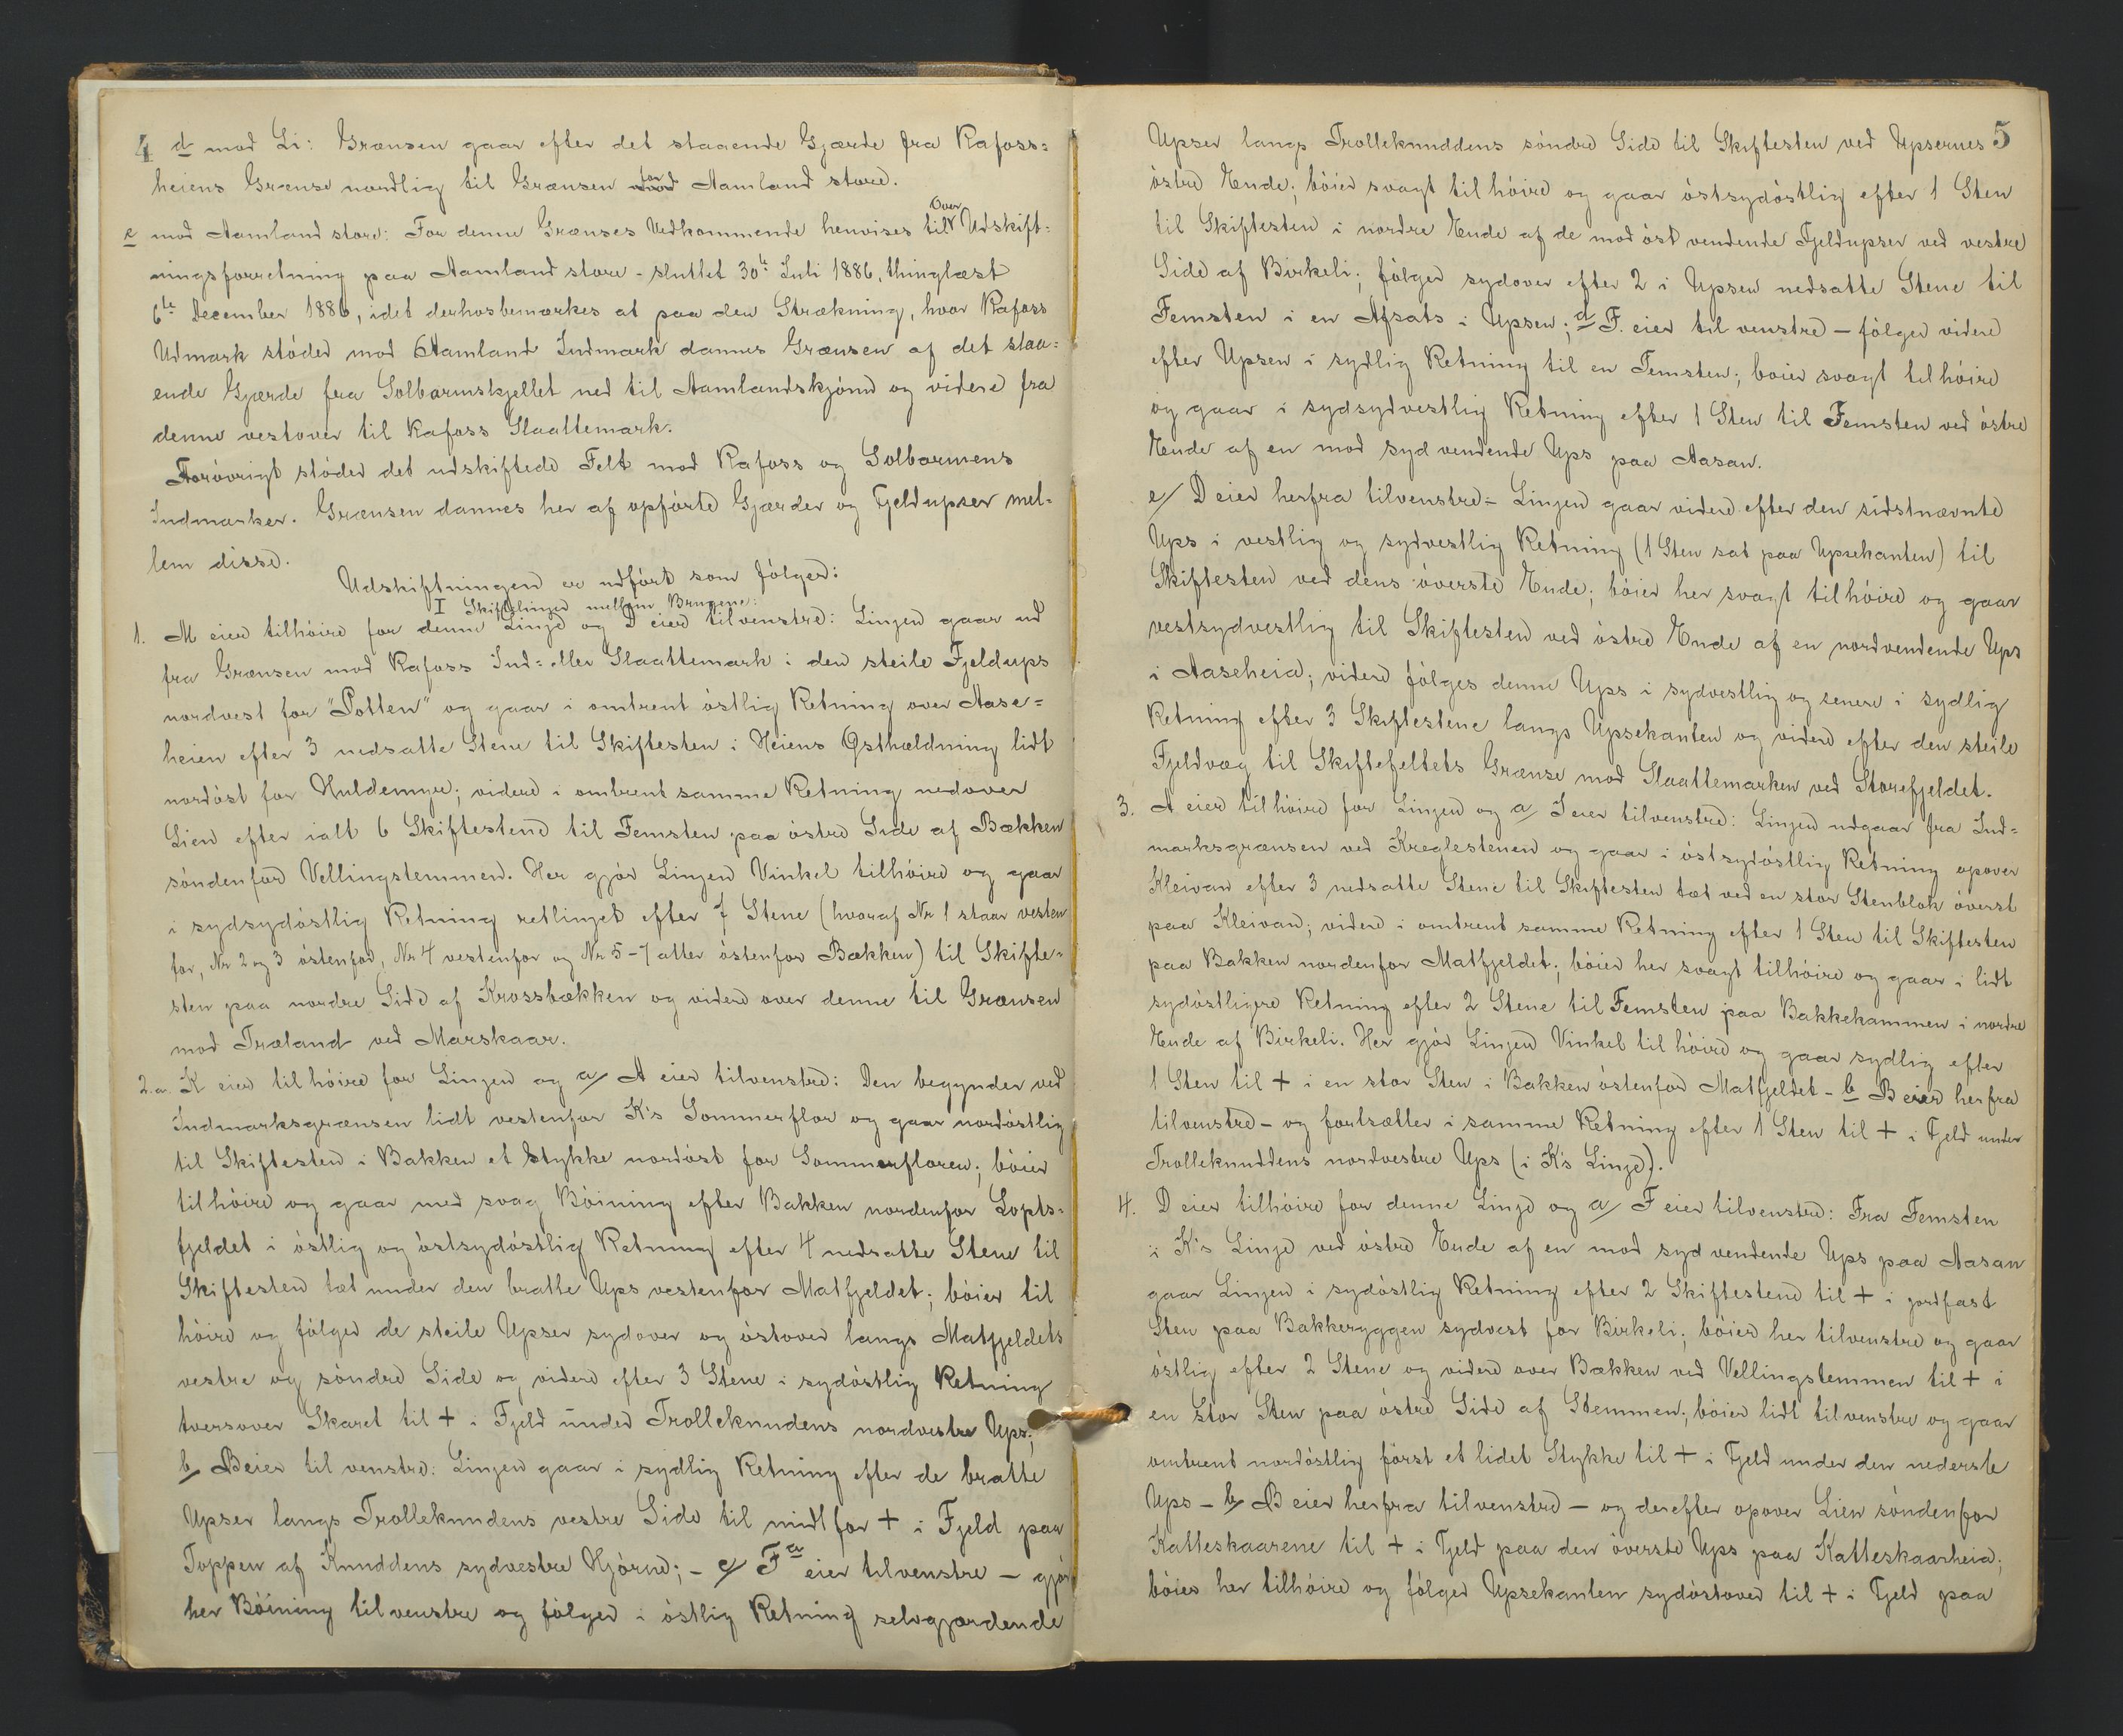 4 d mod Li: Grænsen gaar efter det staaende Gjærde fra Rafoss=
heiens Grænse nordlig til Grænsen for mod Aamland store.
e mod Aamland store: For denne Grænses Vedkommende henvises til Over Udskift=
ningsforretning paa Aamland store - sluttet 30te Juli 1886, thinglæst
6te December 1886, idet derhosbemærkes at paa den Strækning, hvor Rafoss
Udmark støder mod Aamland Indmark dannes Grænsen af det staa=
ende Gjærde fra Solbarmskjellet ned til Aamlandskjønn og videre fra
denne vestover til Rafoss Slaattemark.
Forøvrigt støder det udskiftede Felt mod Rafoss og Solbarmens
Indmarker. Grænsen dannes her af opførte Gjærder og Fjeldupser mel=
lem disse.
Udskiftningen er udført som følger:
I Skiftelinjer mellem Brugene:
1. M eier tilhøire for denne Linje og D eier tilvenstre: Linjen gaar ud
fra Grænsen mod Rafoss Ind= eller Slaattemark i den steile Fjeldups
nordvest for "Potten" og gaar i omtrent østlig Retning over Aase=
heien efter 3 nedsatte Stene til Skiftesten i Heiens Østhældning lidt
nordøst for Huldemyr; videre i omtrent samme Retning nedover
Lien efter ialt 6 Skiftestene til Femsten paa østre Side af Bækken
søndenfor Vellingstemmen. Her gjør Linjen Vinkel tilhøire og gaar
i sydsydøstlig Retning retlinjet efter 7 Stene (hvoraf Nr 1 staar vesten
for, Nr 2 og 3 østenfor, Nr 4 vestenfor og Nr 5-7 atter østenfor Bækken) til Skifte=
sten paa nordre Side af Krossbækken og videre over denne til Grænsen
mod Træland ved Marskaar.
2.a. K eier tilhøire for Linjen og a/ A eier tilvenstre: Den begynder ved
Indmarksgrænsen lidt vestenfor K's Sommerflor og gaar nordøstlig
til Skiftesten i Bakken et Stykke nordøst for Sommerfloren; bøier
tilhøire og gaar med svag Bøining efter Bakken nordenfor Lopts=
fjeldet i østlig og østsydøstlig Retning efter 4 nedsatte Stene til
Skiftesten tæt under den bratte Ups vestenfor Matfjeldet; bøier til
høire og følger de steile Upser sydover og østover langs Matfjeldets
vestre og søndre Side og videre efter 3 Stene i sydøstlig Retning
tversover Skaret til + i Fjeld under Trolleknudens nordvestre Ups;
b/ B eier tilvenstre: Linjen gaar i sydlig Retning efter de bratte
Upser langs Trolleknudens vestre Side til midt for + i Fjeld paa
Toppen af Knuddens sydvestre Hjørne; - c/ Fa eier tilvenstre - gjør
her Bøining tilvenstre og følger i østlig Retning selvgjærdende
5
Upser langs Trolleknuddens søndre Side til Skiftesten ved Upsernes
østre Ende; bøier svagt tilhøire og gaar østsydøstlig efter 1 Sten
til Skiftesten i nordre Ende af de mod øst vendende Fjeldupser ved vestre
Side af Birkeli; følger sydover efter 2 i Upsen nedsatte Stene til
Femsten i en Afsats i Upsen; d F. eier tilvenstre - følger videre
efter Upsen i sydlig Retning til en Femsten; bøier svagt tilhøire
og gaar i sydsydvestlig Retning efter 1 Sten til Femsten ved østre
Ende af en mod syd vendende Ups paa Aasan.
e/ D eier herfra tilvenstre - Linjen gaar videre efter den sidstnævnte
Ups i vestlig og sydvestlig Retning (1 Sten sat paa Upsekanten) til
Skiftesten ved dens øverste Ende; bøier her svagt tilhøire og gaar
vestsydvestlig til Skiftesten ved østre Ende af en nordvendende Ups
i Aaseheia; videre følges denne Ups i sydvestlig og senere i sydlig
Retning efter 3 Skiftestene langs Upsekanten og videre efter den steile
Fjeldvæg til Skiftefeltets Grænse mod Slaattemarken ved Storefjeldet.
3. A eier tilhøire for Linjen og a/ I eier tilvenstre: Linjen udgaar fra Ind=
marksgrænsen ved Kreglestenen og gaar i østsydøstlig Retning opover
Kleivan efter 3 nedsatte Stene til Skiftesten tæt ved en stor Stenblok øverst
paa Kleivan; videre i omtrent samme Retning efter 1 Sten til Skiftesten
paa Bakken nordenfor Matfjeldet; bøier her svagt tilhøire og gaar i lidt
sydøstligere Retning efter 2 Stene til Femsten paa Bakkekammen i nordre
Ende af Birkeli. Her gjør Linjen Vinkel til høire og gaar sydlig efter
1 Sten til + i en stor Sten i Bakken østenfor Matfjeldet - b B eier herfra
tilvenstre - og fortsætter i samme Retning efter 1 Sten til + i Fjeld under
Trolleknuddens nordvestre Ups (i K's Linje).
4. D eier tilhøire for denne Linje og a/ F eier tilvenstre: Fra Femsten
i K's Linje ved østre Ende af en mod syd vendende Ups paa Aasan
gaar Linjen i sydøstlig Retning efter 2 Skiftestene til + i jordfast
Sten paa Bakkeryggen sydvest for Birkeli; bøier her tilvenstre og gaar
østlig efter 2 Stene og videre over Bækken ved Vellingstemmen til + i
en stor Sten paa østre Side af Stemmen; bøier lidt tilvenstre og gaar
omtrent nordøstlig først et lidet Stykke til + i Fjeld under den nederste
Ups - b/ B eier herfra tilvenstre - og derefter opover Lien søndenfor
Katteskaarene til + i Fjeld paa den øverste Ups paa Katteskaarheia;
bøier her tilhøire og følger Upsekanten sydøstover til + i Fjeld paa